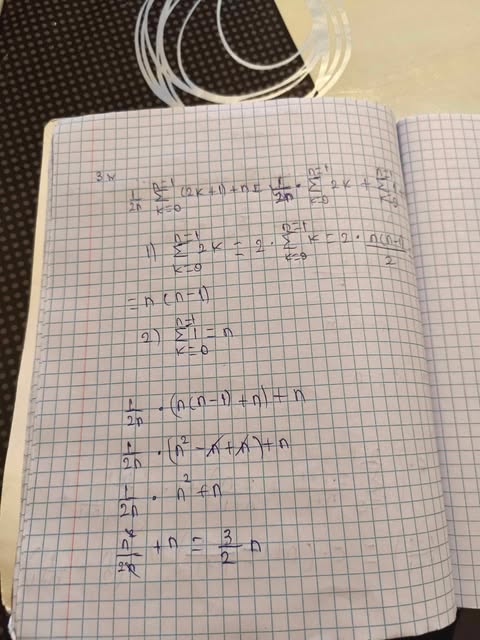 3.
1/2n ∑_{k=0}^{n-1} (2k+1)+n = 1/2n · ∑_{k=0}^{n-1} 2k + ∑_{k=0}^{n-1}
1) ∑_{k=0}^{n-1} 2k = 2 · ∑_{k=0}^{n-1} k = 2 · n(n-1)/2
= n(n-1)
2) ∑_{k=0}^{n-1} 1 = n
1/2n · (n(n-1)+n)+n
1/2n · (n²-n+n)+n
1/2n · n²+n
n²/2n + n = 3/2 n